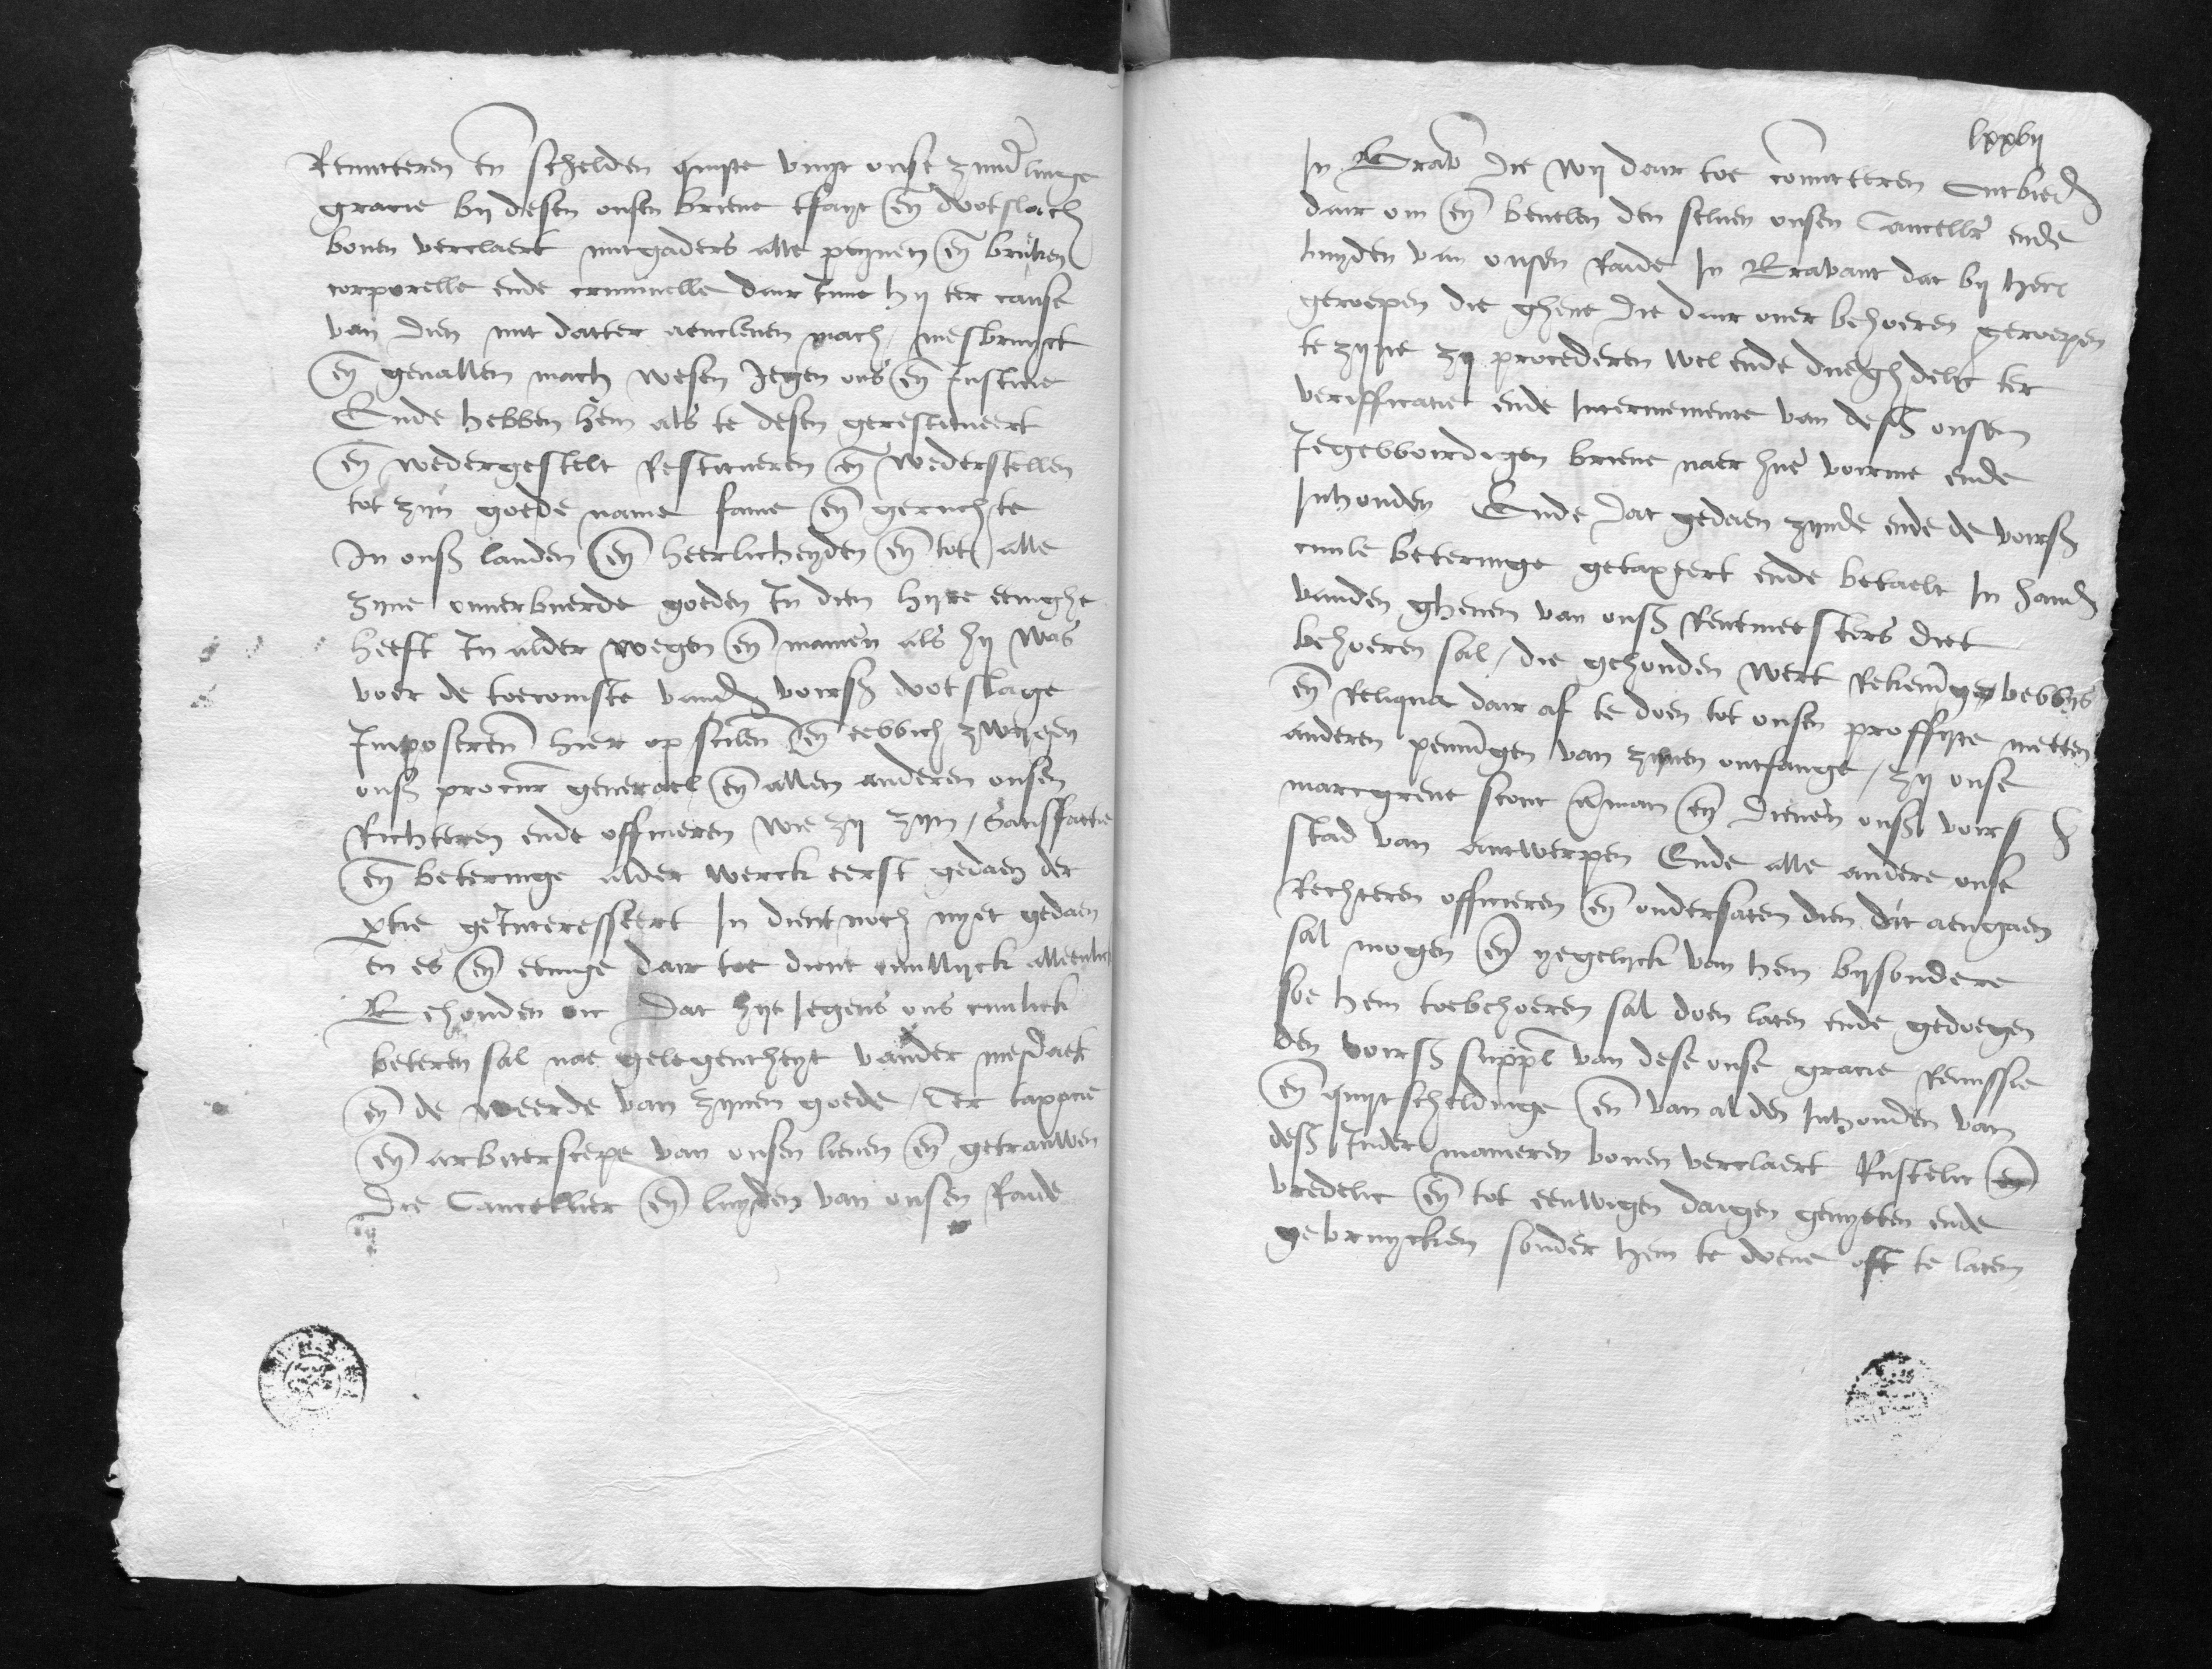 Remitteren en schelden quijte vuyt onse zunderlinge
gracie bij desen onsen brieve tfayt en dootslach
boven verclaert mitgaders alle peynen en bruken
corporelle ende criminelle dair Inne hij ter cause
van dien mit datter aencleven mach mesbruyct
en gevallen mach wesen Jegen ons en Justicie
Ende hebben hem als te desen gerestitueert
en wedergestelt Restitueren en wederstellen
tot zijn goede name fame en geruchte
In onsß landen en heerlicheyden en tot alle
zijne onverbuerde goeden In dien hijre eenighe
heeft In alder wegen en manien als hij was
voer de toecomste vand voirsß dootslage
Imposeren hier op scilen en eewich zwijgen
onsß procur generael en allen anderen onsen
Richteren ende officieren wie zij zijn / Satisfactie
en beteringe alder werck eerst gedaen der
ptie geInteresseert In dient noch nyet gedaen
en es en eenige dair toe dient civillijck alleenlic
Behouden oic Dat hijt Jegens ons civilick
beteren sal nae gelegentheyt vander mesdaet
en de weerde van zijnen goede / Ter taxacie
en arbiterscepe van onsen lieven en getrauwen
Die Cancellier en luyden van onsen Raide
lxxvij
In Brab die wij dair toe comitteren Ontbied
dair om en bevelen den selven onsen Cancellr ende
luyden van onsen Raide In Brabant dat bij hen
geroepen die ghene die dair over behoeren geroepen
te zijne zij procederen wel ende dueghdelic ter
verifficatie ende Interinemente van desß onsen
Jegewoirdigen brieve naer hue voirme ende
Inhouden Ende dat gedaen zijnde ende de voirsß
civile beteringe getaxeert ende betaelt In hand
vanden ghenen van onsß Rentmeesters diet
behoeren sal / die gehouden wert Rekeninge bewijs
en Reliqua dair af te doen tot onsen proffijte metten
anderen penningen van zijnen ontfange / zij onse
marcgreve scout aman en dienen onsß voirsß
stad van antwerpen Ende alle andere onse
Rechteren officieren en ondersaten dien dit aengaen
sal mogen en yegelijck van hem bijsondere
soe hem toebehoeren sal doen laten ende gedoegen
den voirsß suppl van dese onse gracie Remissie
en quijtscheldinge en van al den Inhouden van
desß Inder manieren boven verclaert Rustelic en
vredelic en tot eenwigen daigen genyeten ende
gebruycken sonder hem te doene oft te laten